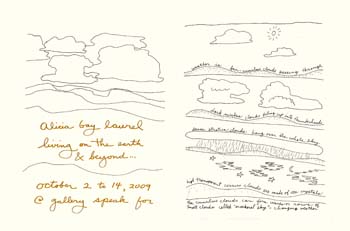 alicia bay laurel
living on the earth
& beyond...
october 2 to 14, 2009
@ gallery speak for
weather is fair cumulus clouds passing through
cumulus clouds piling up into thunderheads
clouds hang over the whole sky
high transparent cirrus clouds are made of ice crystals
small clouds called "mackerel sky": changing weather